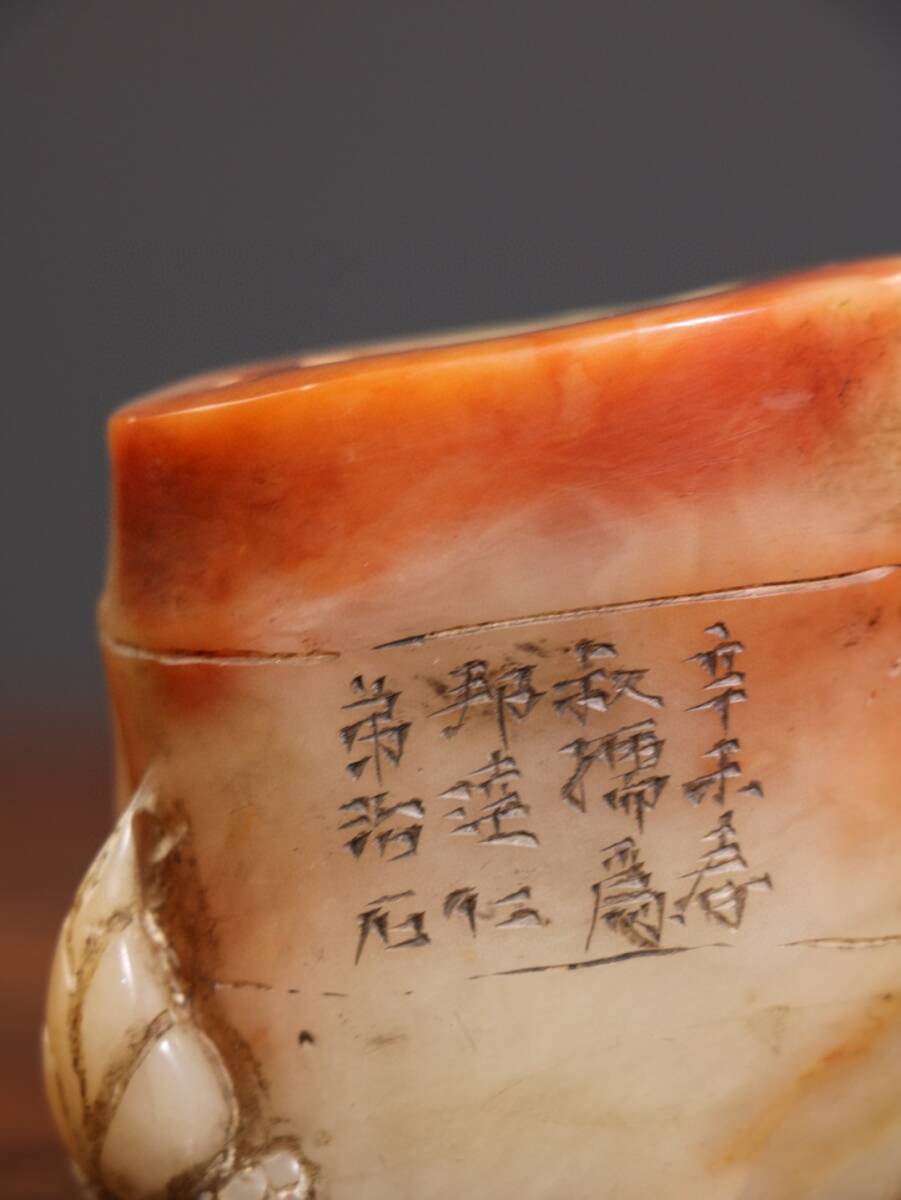 辛未春
叔孺為
邦達仁
弟治石